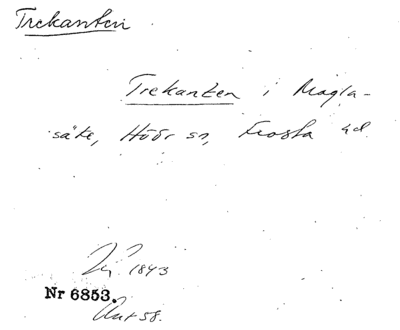 Trekanten
Trekanten i Magla-
säte, Höör sn, Frosta hd.
1843
Nr 6853.
Ant 58.